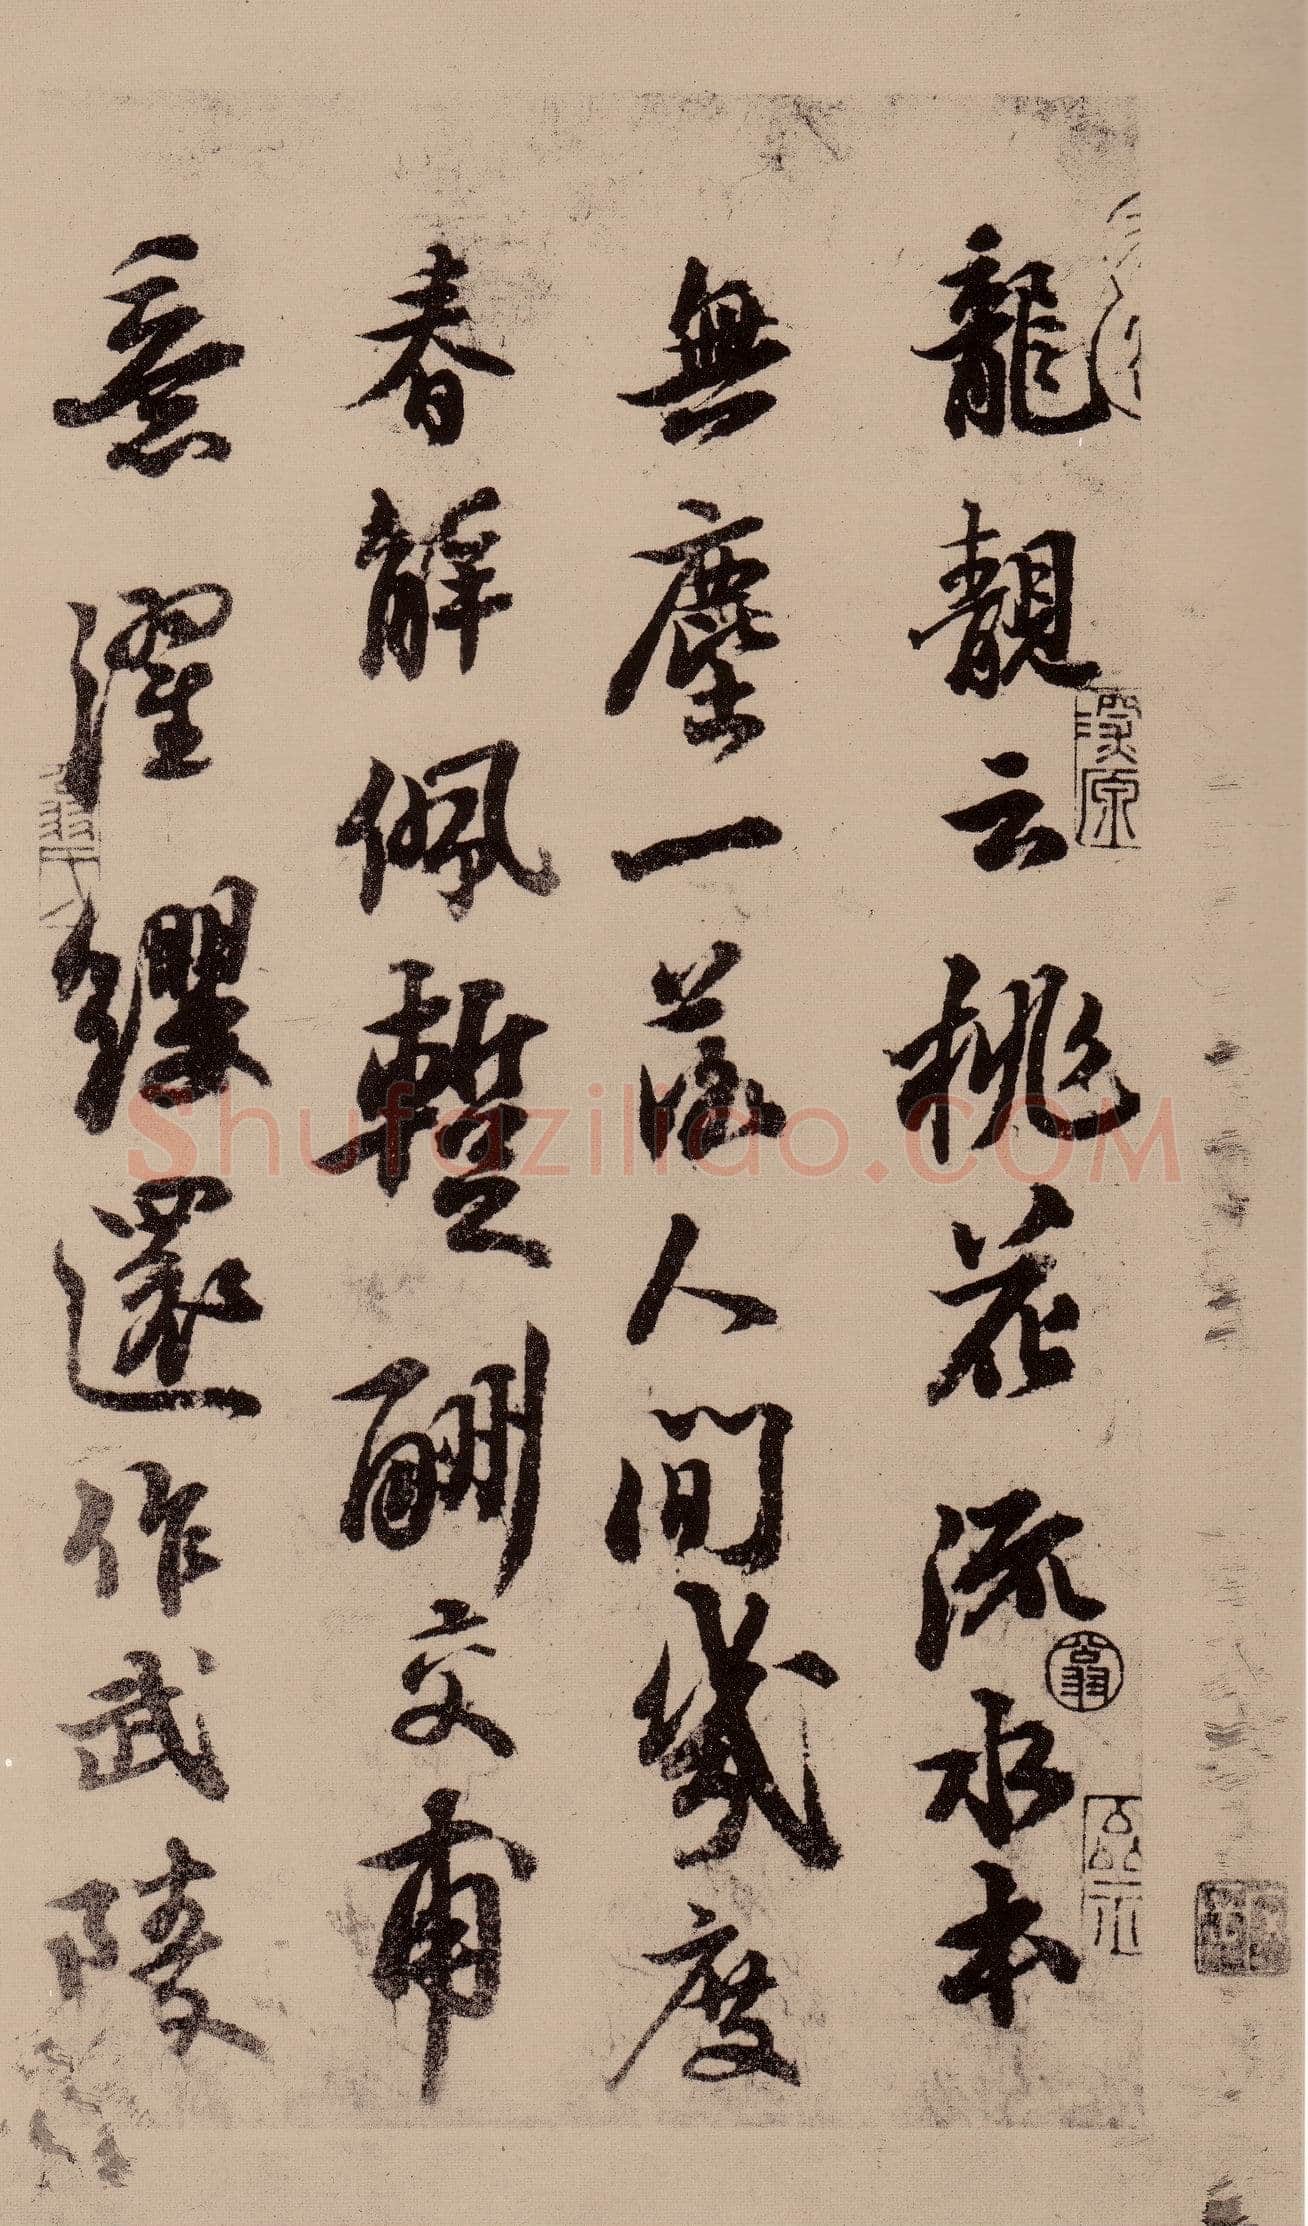 龍靚云桃花流水本
無塵一落人間幾度
春解佩暫酬交甫
意濯纓還作武陵
深原
翁
Shufaziliao.COM